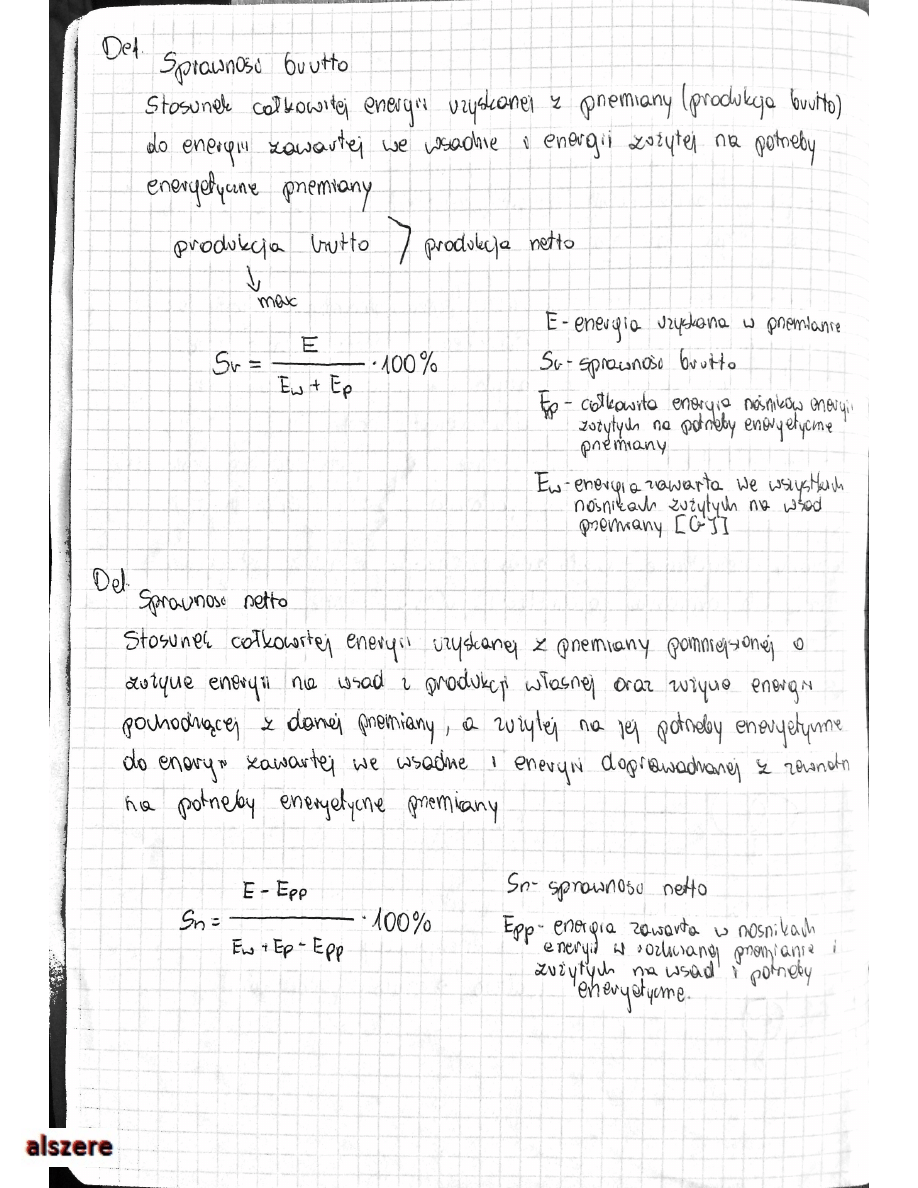 Def.
Sprawność brutto
Stosunek całkowitej energii uzyskanej z przemiany (produkcja brutto)
do energii zawartej we wsadzie i energii zużytej na potrzeby
energetyczne przemiany
produkcja brutto > produkcja netto
↓
max
E - energia uzyskana w przemianie
Sb = E / (Ew + Ep) · 100%
Sb - sprawność brutto
Ep - całkowita energia nośników energii
zużytych na potrzeby energetyczne
przemiany
Ew - energia zawarta we wszystkich
nośnikach zużytych na wsad
przemiany [GJ]
Def.
Sprawność netto
Stosunek całkowitej energii uzyskanej z przemiany pomniejszonej o
zużycie energii na wsad z produkcji własnej oraz zużycie energii
pochodzącej z danej przemiany, a zużytej na jej potrzeby energetyczne
do energii zawartej we wsadzie i energii doprowadzanej z zewnątrz
na potrzeby energetyczne przemiany
Sn = (E - Epp) / (Ew + Ep - Epp) · 100%
Sn - sprawność netto
Epp - energia zawarta w nośnikach
energii w rozliczanej przemianie i
zużytych na wsad i potrzeby
energetyczne.
alszere